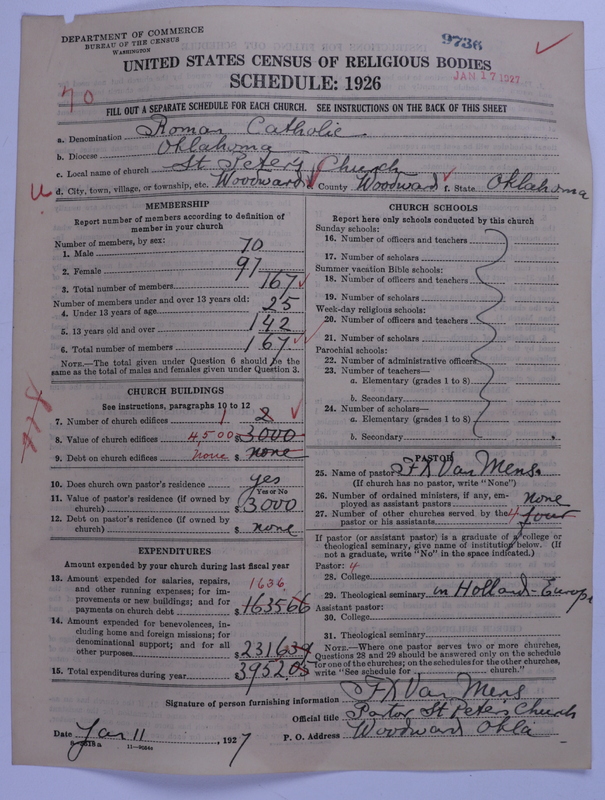 DEPARTMENT OF COMMERCE
BUREAU OF THE CENSUS
WASHINGTON
9736
JAN 17 1927
UNITED STATES CENSUS OF RELIGIOUS BODIES
SCHEDULE: 1926
70
FILL OUT A SEPARATE SCHEDULE FOR EACH CHURCH. SEE INSTRUCTIONS ON THE BACK OF THIS SHEET
a. Denomination Roman Catholic
b. Diocese Oklahoma
c. Local name of church St Peter's Church
d. City, town, village, or township, etc. Woodward e. County Woodward f. State Oklahoma
MEMBERSHIP
Report number of members according to definition of
member in your church
Number of members, by sex:
1. Male 70
2. Female 97
3. Total number of members 167
Number of members under and over 13 years old:
4. Under 13 years of age 25
5. 13 years old and over 142
6. Total number of members 167
NOTE.—The total given under Question 6 should be the
same as the total of males and females given under Question 3.
CHURCH BUILDINGS
See instructions, paragraphs 10 to 12
7. Number of church edifices 1 2
8. Value of church edifices 4,500 $ 3000
9. Debt on church edifices none $ none
10. Does church own pastor's residence yes
Yes or No
11. Value of pastor's residence (if owned by
church) $ 3000
12. Debt on pastor's residence (if owned by
church) $ none
EXPENDITURES
Amount expended by your church during last fiscal year
13. Amount expended for salaries, repairs,
and other running expenses; for im-
provements or new buildings; and for
payments on church debt 1636 $ 163566
14. Amount expended for benevolences, in-
cluding home and foreign missions; for
denominational support; and for all
other purposes $ 231639
15. Total expenditures during year $ 395205
CHURCH SCHOOLS
Report here only schools conducted by this church
Sunday schools:
16. Number of officers and teachers
17. Number of scholars
Summer vacation Bible schools:
18. Number of officers and teachers
19. Number of scholars
Week-day religious schools:
20. Number of officers and teachers
21. Number of scholars
Parochial schools:
22. Number of administrative officers
23. Number of teachers—
a. Elementary (grades 1 to 8)
b. Secondary
24. Number of scholars—
a. Elementary (grades 1 to 8)
b. Secondary
PASTOR
25. Name of pastor F X Van Mens.
(If church has no pastor, write "None")
26. Number of ordained ministers, if any, em-
ployed as assistant pastors none
27. Number of other churches served by the
pastor or his assistants 4 four
If pastor (or assistant pastor) is a graduate of a college or
theological seminary, give name of institution below. (If
not a graduate, write "No" in the space indicated.)
Pastor: 4
28. College
29. Theological seminary in Holland-Europe
Assistant pastor:
30. College
31. Theological seminary
NOTE.—Where one pastor serves two or more churches,
Questions 28 and 29 should be answered only on the schedule
for one of the churches; on the schedules for the other churches,
write "See schedule for church."
Signature of person furnishing information F X Van Mens
Official title Pastor St Peter's Church
Date Jan 11, 1927 P. O. Address Woodward Okla
8-5618a 11-9064a